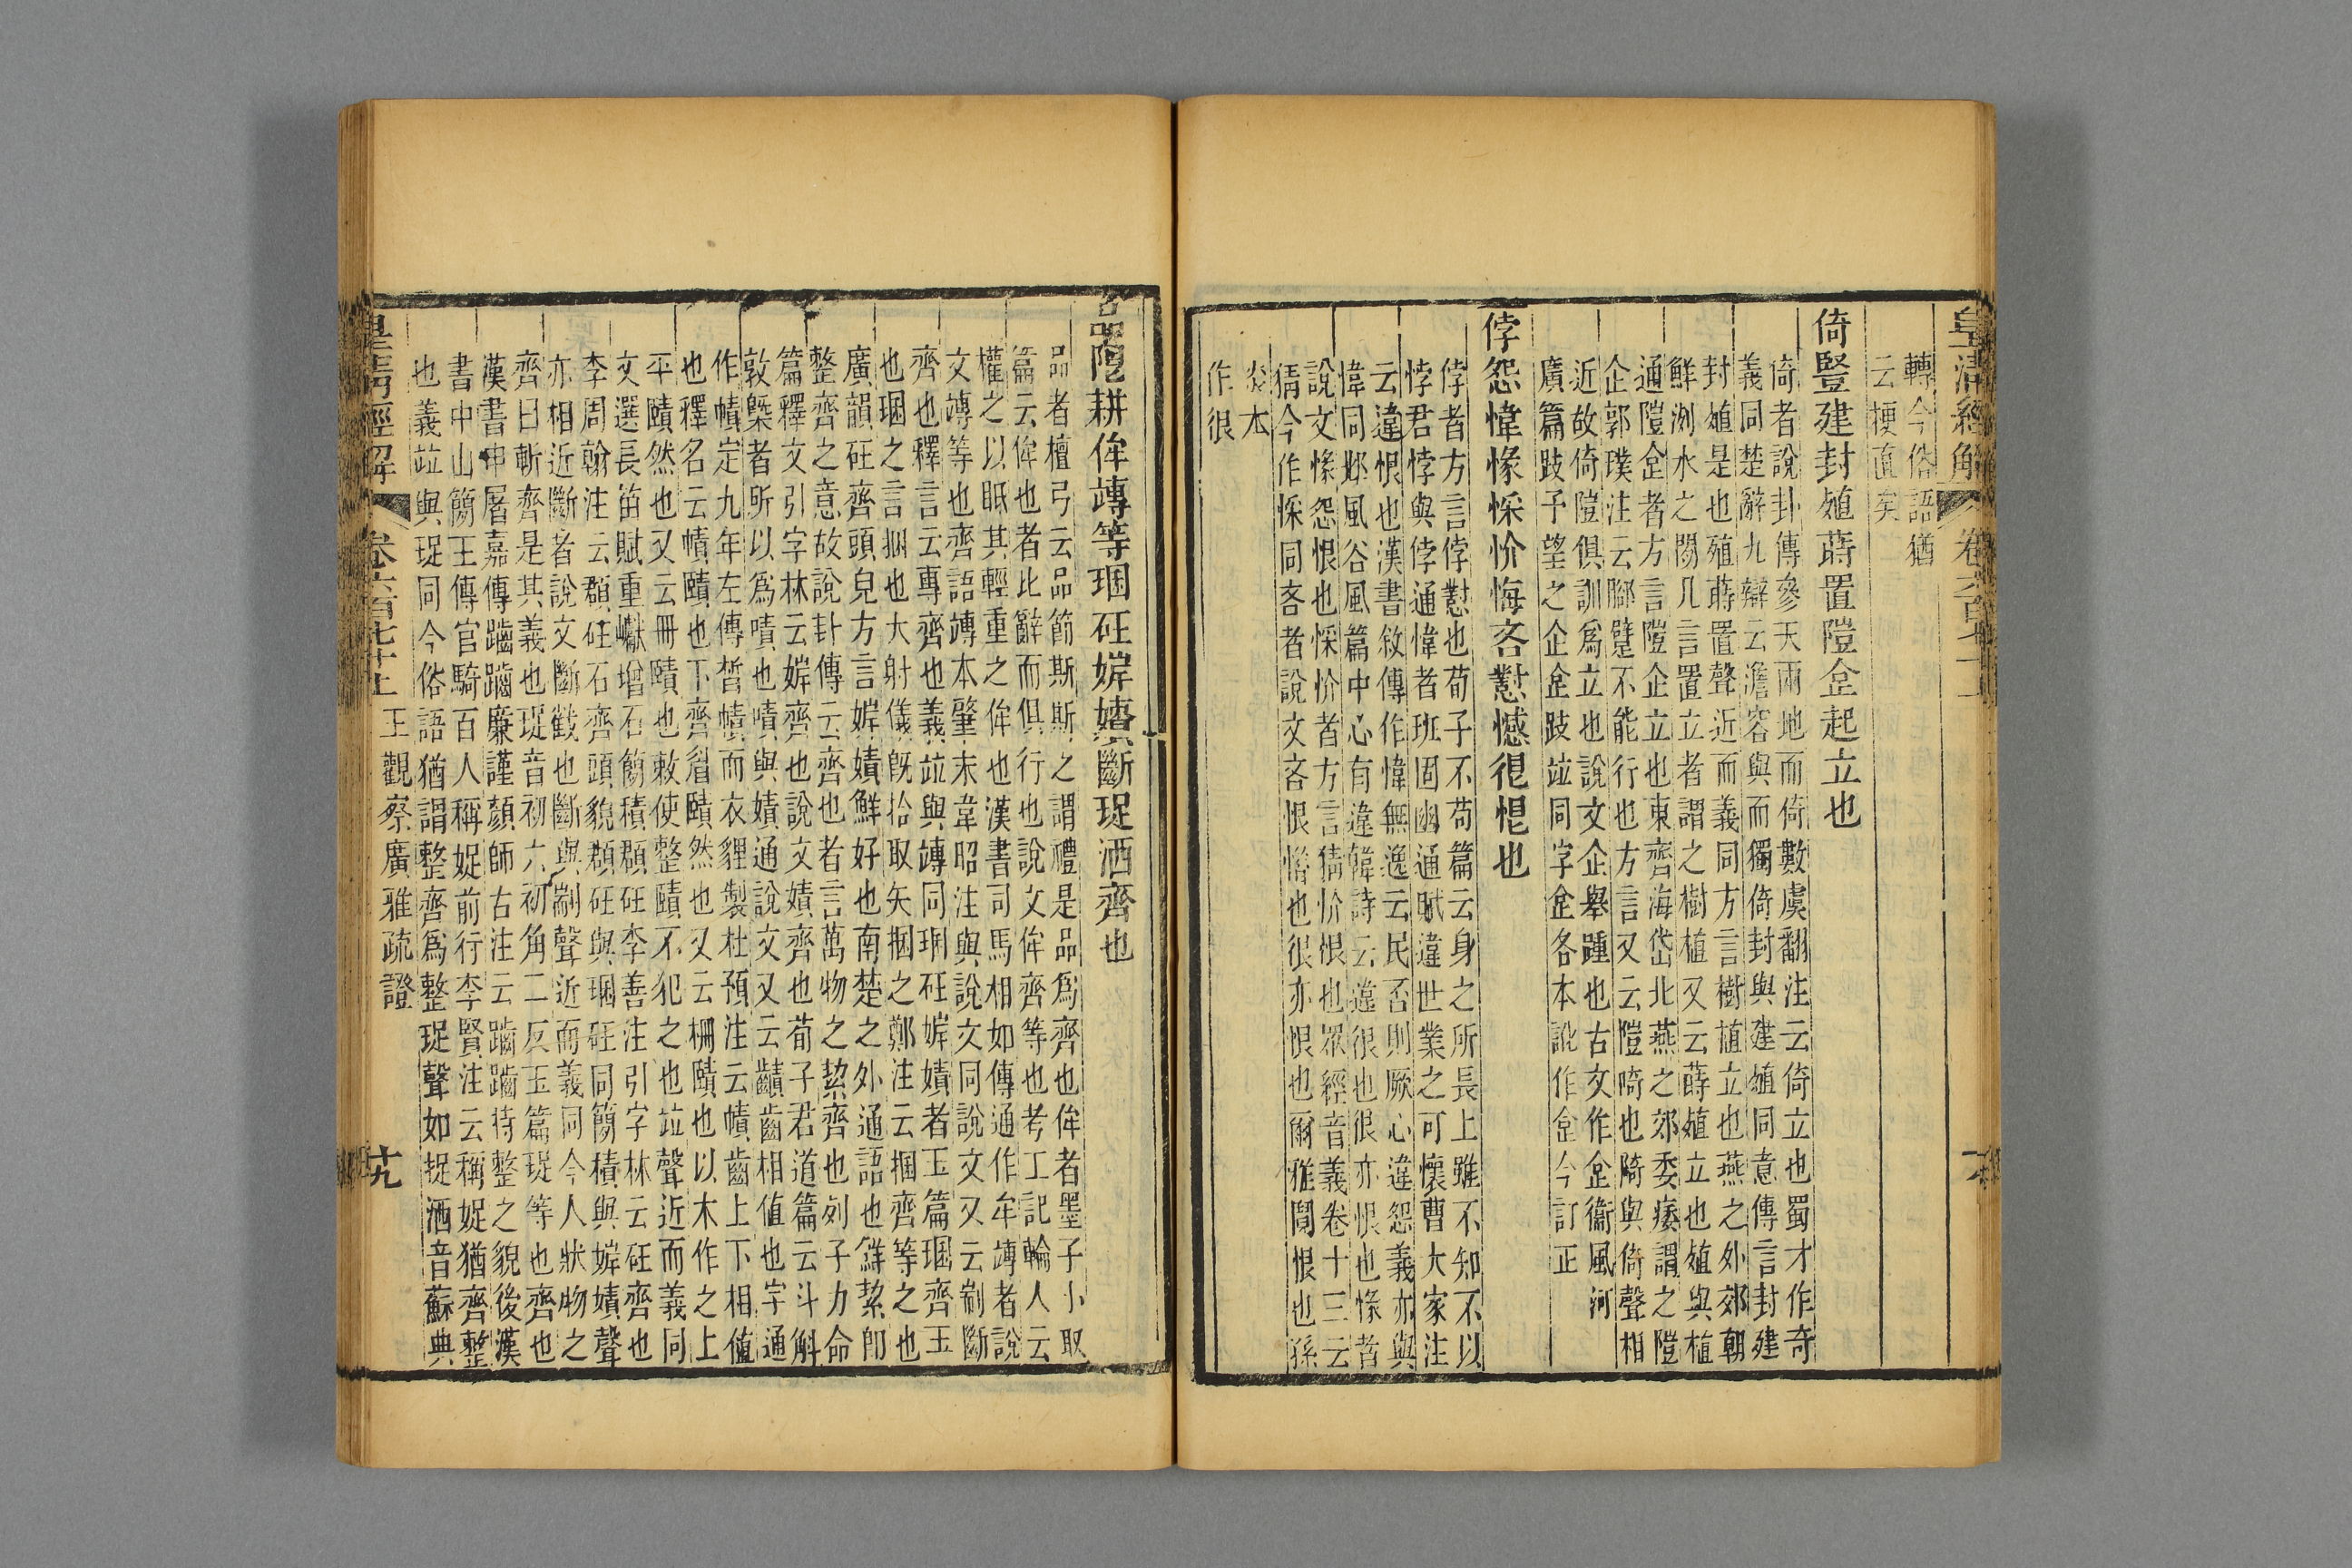 皇清經解 卷六百七十上
轉今俗語猶
云梗直矣
倚豎建封殖蒔置隑企起立也
倚者說卦傳參天兩地而倚數虞翻注云倚立也蜀才作奇
義同楚辭九辯云澹容與而獨倚封與建殖同意傳言封建
封殖是也殖蒔置聲近而義同方言樹植立也燕之外郊朝
鮮洌水之閒凡言置立者謂之樹植又云蒔殖立也殖與植
通隑企者方言隑企立也東齊海岱北燕之郊委痿謂之隑
企郭璞注云腳躄不能行也方言又云隑陭也陭與倚聲相
近故倚隑俱訓爲立也說文企舉踵也古文作𧿁衞風河
廣篇跂予望之企𧿁跂竝同字企各本訛作㑒今訂正
悖怨愇㥟惏忦悔吝懟憾很悒也
悖者方言悖懟也荀子不苟篇云身之所長上雖不知不以
悖君悖與悖通愇者班固幽通賦違世業之可懷曹大家注
云違恨也漢書敘傳作愇無逸云民否則厥心違怨義亦與
愇同邶風谷風篇中心有違韓詩云違很也很亦恨也㥟者
說文㥟怨恨也惏忦者方言猜忦恨也眾經音義卷十三云
猜今作惏同吝者說文吝恨惜也很亦恨也爾雅鬩恨也孫
炎本
作很
耕侔竱等琨砡婩嫧斷珿洒齊也
品者檀弓云品節斯斯之謂禮是品爲齊也侔者墨子小取
篇云侔也者比辭而俱行也說文侔齊等也考工記輪人云
權之以眡其輕重之侔也漢書司馬相如傳通作牟竱者說
文竱等也齊語竱本肇末韋昭注與說文同說文又云剬斷
齊也釋言云專齊也義竝與竱同琨砡婩嫧者玉篇琨齊玉
也琨之言捆也大射儀旣拾取矢捆之鄭注云捆齊等之也
廣韻砡齊頭皃方言婩嫧鮮好也南楚之外通語也鮮絜卽
整齊之意故說卦傳云齊也者言萬物之絜齊也列子力命
篇釋文引字林云婩齊也說文嫧齊也荀子君道篇云斗斛
敦槩者所以爲嘖也嘖與嫧通說文又云齰齒相值也字通
作幘定九年左傳皙幘而衣貍製杜預注云幘齒上下相值
也釋名云幘賾也下齊眉賾然也又云柵賾也以木作之上
平賾然也又云冊賾也敕使整賾不犯之也竝聲近而義同
文選長笛賦重巘增石簡積頵砡李善注引字林云砡齊也
李周翰注云頵砡石齊頭貌頵砡與琨砡同簡積與婩嫧聲
亦相近斷者說文斷截也斷與剬聲近而義同今人狀物之
齊曰斬齊是其義也珿音初六初角二反玉篇珿等也齊也
漢書申屠嘉傳䠞䠞廉謹顏師古注云䠞䠞持整之貌後漢
書中山簡王傳官騎百人稱娖前行李賢注云稱娖猶齊整
也義竝與珿同今俗語猶謂整齊爲整珿聲如捉洒音蘇典
皇清經解 卷六百七十上 王觀察廣雅疏證 十九